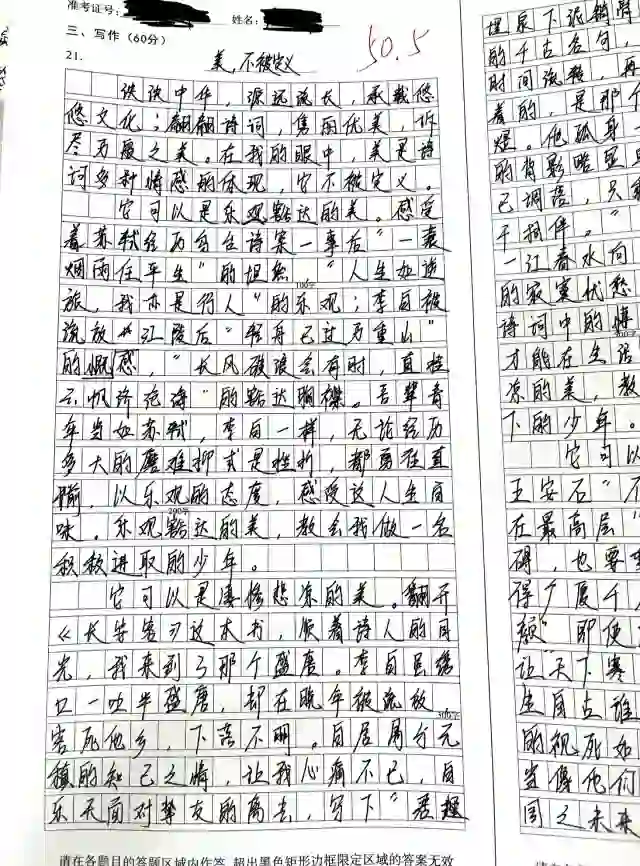 准考证号:
姓名:
三、写作（60分）
50.5
21.
美,不被定义
泱泱中华，源远流长，承载悠
悠文化；翩翩诗词，隽丽优美，诉
尽万履之美。在我的眼中，美是诗
词多种情感的体现，它不被定义。
它可以是乐观豁达的美。感受
着苏轼经历乌台诗案一事后“一蓑
烟雨任平生”的坦然，“人生如逆
100字
旅，我亦是行人”的乐观；李白被
流放江陵后“轻舟已过万重山”
的慨感，“长风破浪会有时，直挂
云帆济沧海”的豁达胸襟。吾辈青
年当如苏轼，李白一样，无论经历
多大的磨难抑或是挫折，都勇往直
前，以乐观的态度，感受这人生百
200字
味。乐观豁达的美，教会我做一名
积极进取的少年。
它可以是凄惨悲凉的美。翻开
《长安客》这本书，顺着诗人的目
光，我来到了那个盛唐。李白虽绣
口一吐半盛唐，却在晚年被流放
300字
客死他乡，下落不明。白居易介元
稹的知己之情，让我心痛不已，白
乐天面对挚友的离去，写下“君埋
泉下泥销骨
的千古名句，
时间流释，再
着的，是那个
煜。他孤身一
的背影略显
已调落，只
干相伴。”
一江春水向
的寂寞忧愁
诗词中的情
才能在生活
凉的美，教
下的少年。
它可以
王安石“不
在最高层”
碍，也要
得广厦千
颜”即便
让“天下寒
生自古谁
的视死如
当像他们
国之未来
请在各题目的答题区域内作答，超出黑色矩形边框限定区域的答案无效